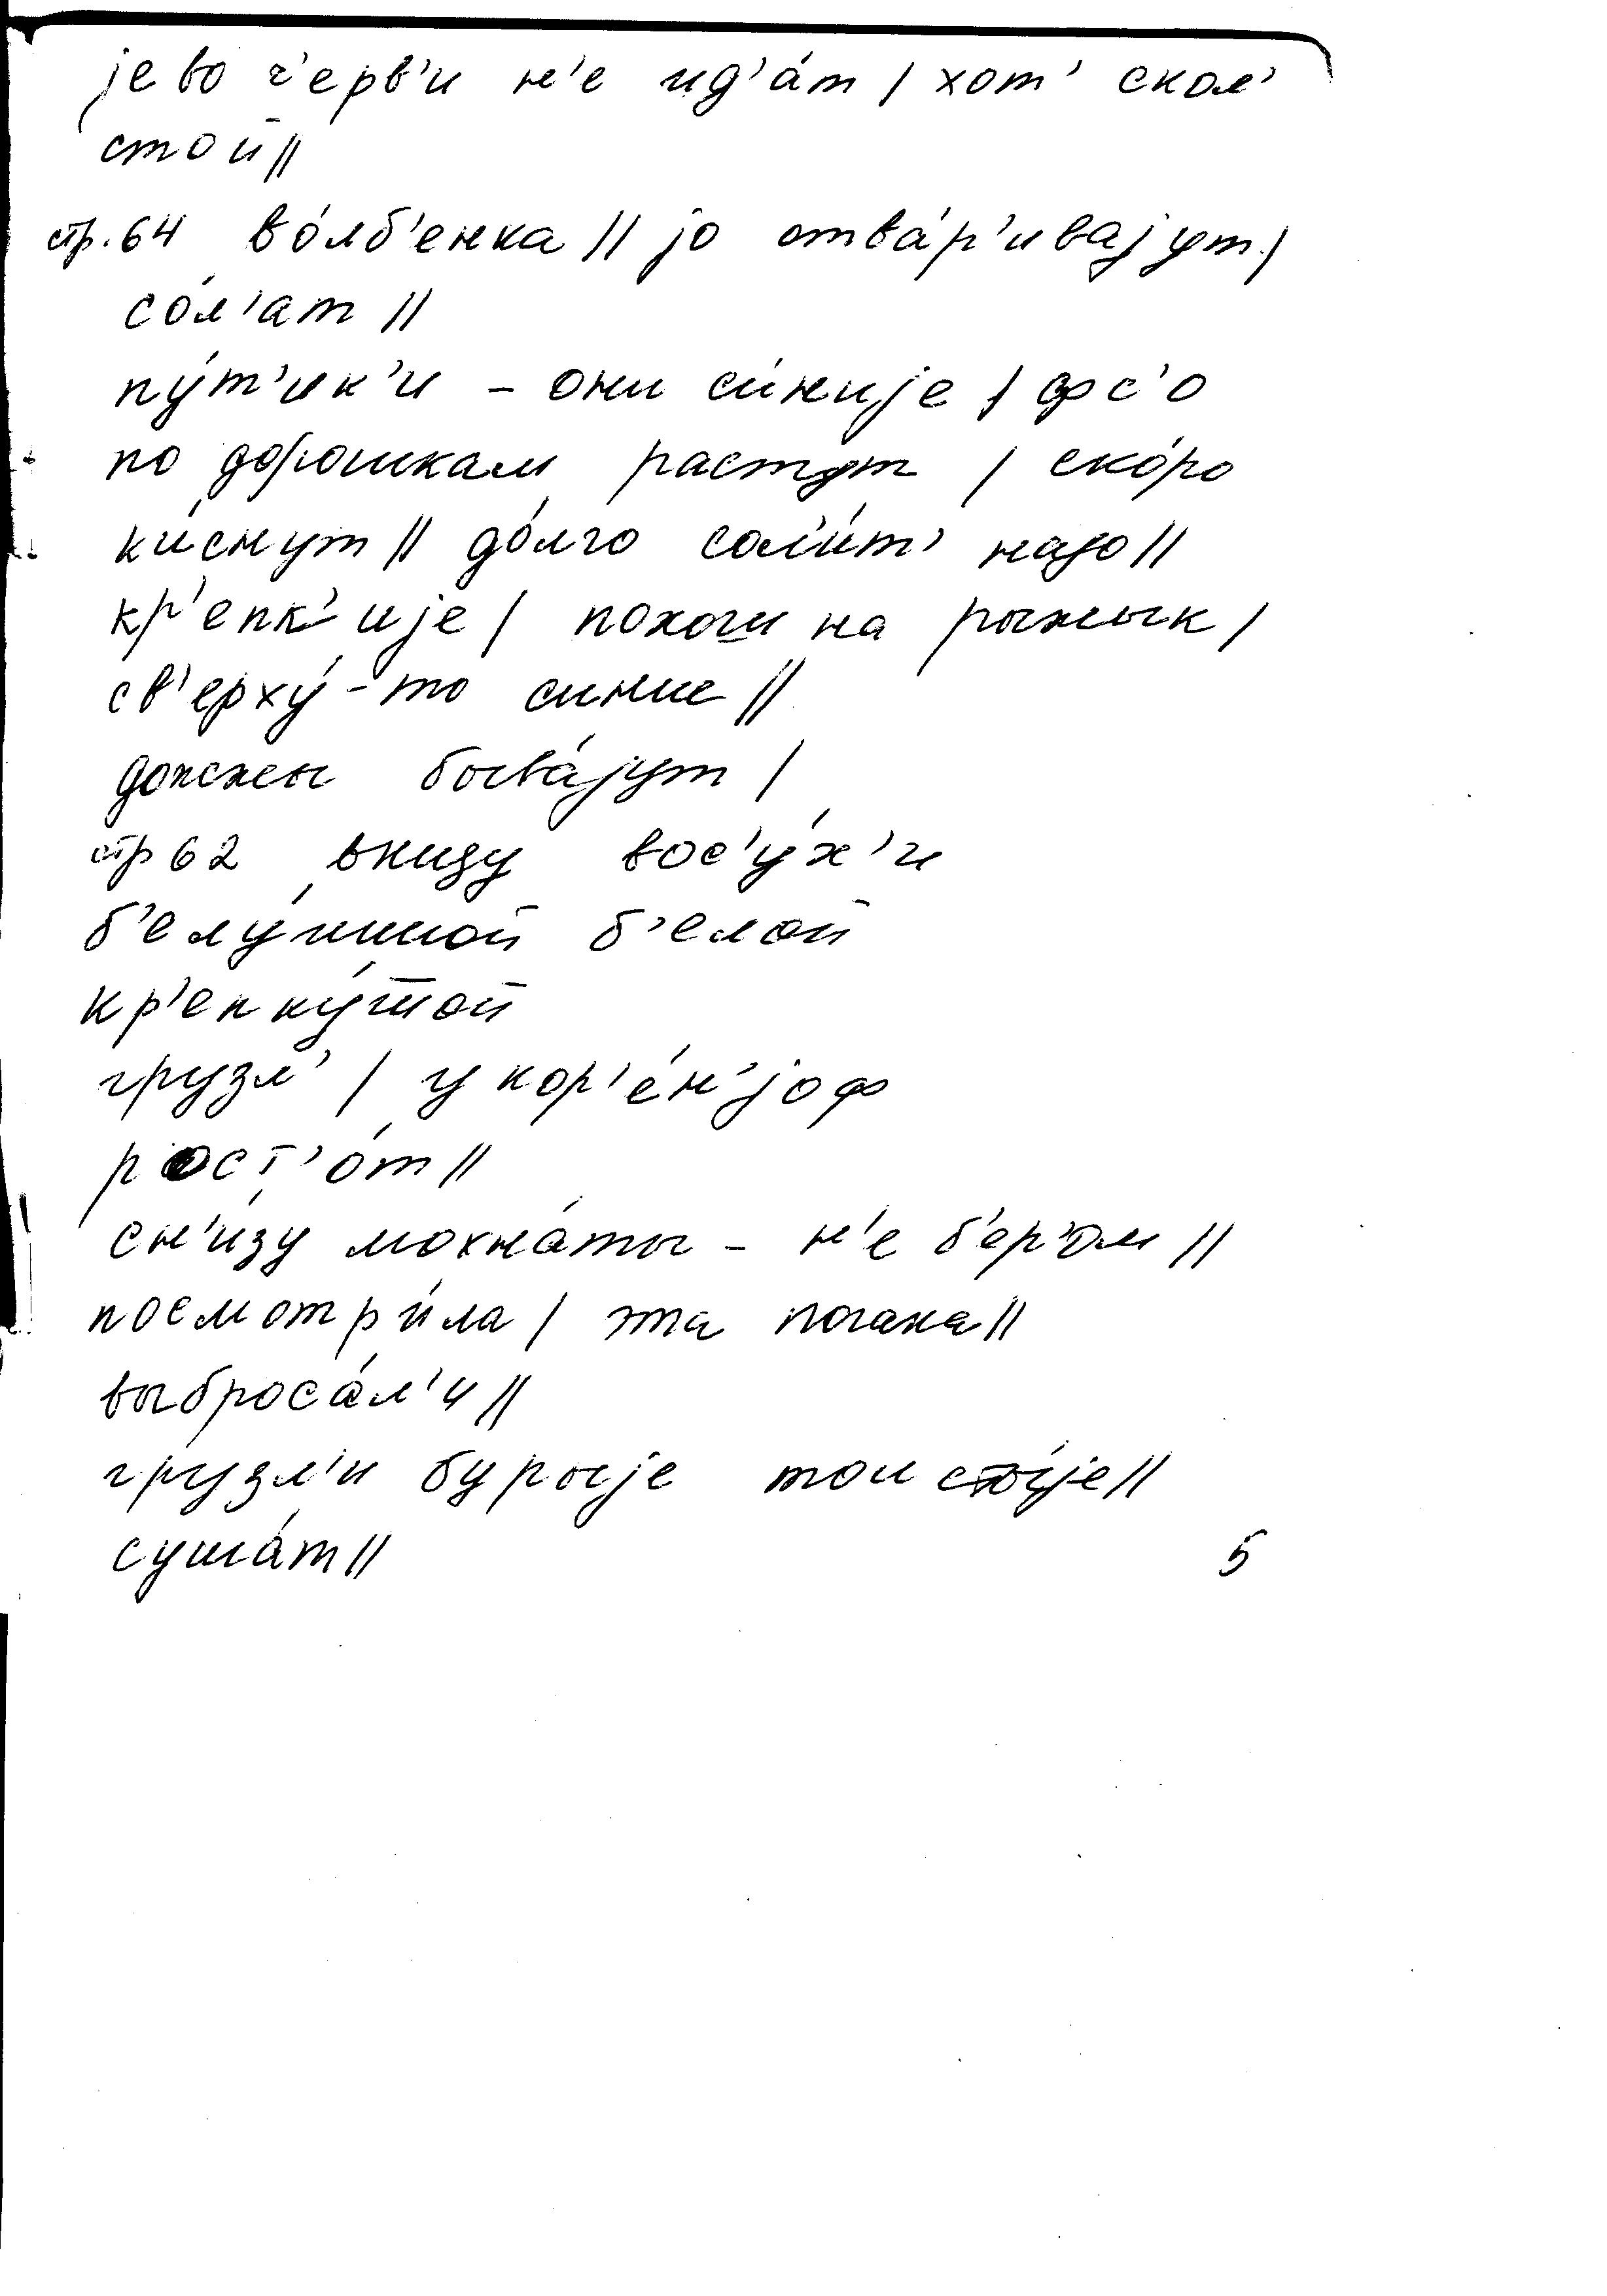 jево ч'ерв'и н'е ид'áт / хот' скол'
стой //
стр. 64 вóлб'енка // jо отвáр'иваjут /
сóл'ат //
пýт'ик'и – они си́ниjе / фс'о
по дорошкам растут / скóро
ки́снут // дóлго сол'и́т' надо //
кр'епк'иjе / похочи на рыжык /
св'ерхý-то синие //
дожжы бывájут /
стр 62 внизу вос'ýх'и
б'елýшшой б'елой
кр'епкýшшой
грузл' / у кор'éн'jоф
рост'óт //
сн'и́зу мохнáты – н'е б'ер'ом //
посмотри́ла / эта погана //
выбросáл'и //
грузл'и бурыjе толстыjе //
сушáт //
5